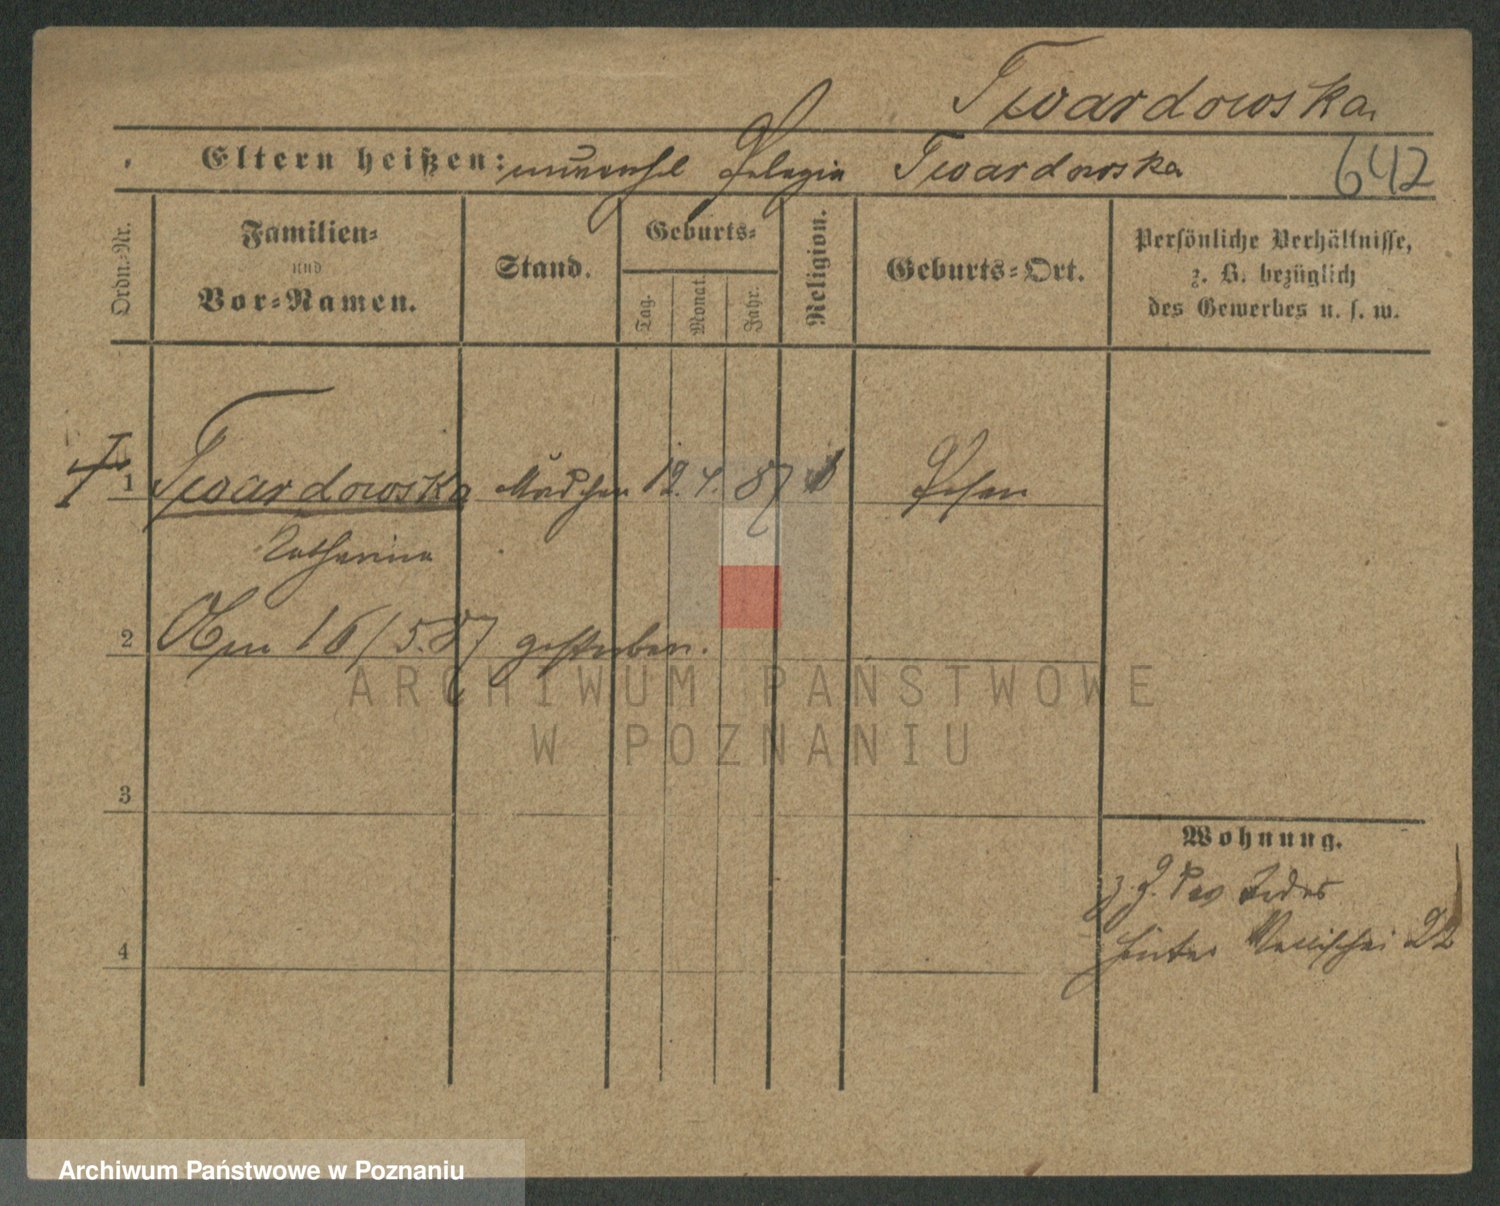 Twardowska.
Eltern heißen: unverehl Pelagia Twardowska
642
Ordn.-Nr.
Familien-
und
Vor-Namen.
Stand.
Geburts-
Tag.
Monat.
Jahr.
Religion.
Geburts-Ort.
Persönliche Verhältnisse,
z. B. bezüglich
des Gewerbes u. s. w.
1 Twardowska Mädchen 12. 4. 87 Posen
Catharina
2 Am 16/5.87 gestorben.
ARCHIWUM PAŃSTWOWE
W POZNANIU
3
Wohnung.
4
hinter Wallischei 22
Archiwum Państwowe w Poznaniu